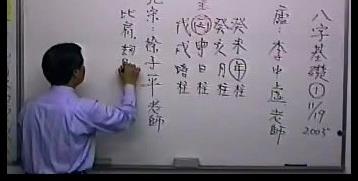 八字基礎①
11/19
2005
唐:李中虛老師
癸未年柱
癸亥月柱
丙申日柱
戊戌時柱
宗:徐子平老師
比肩